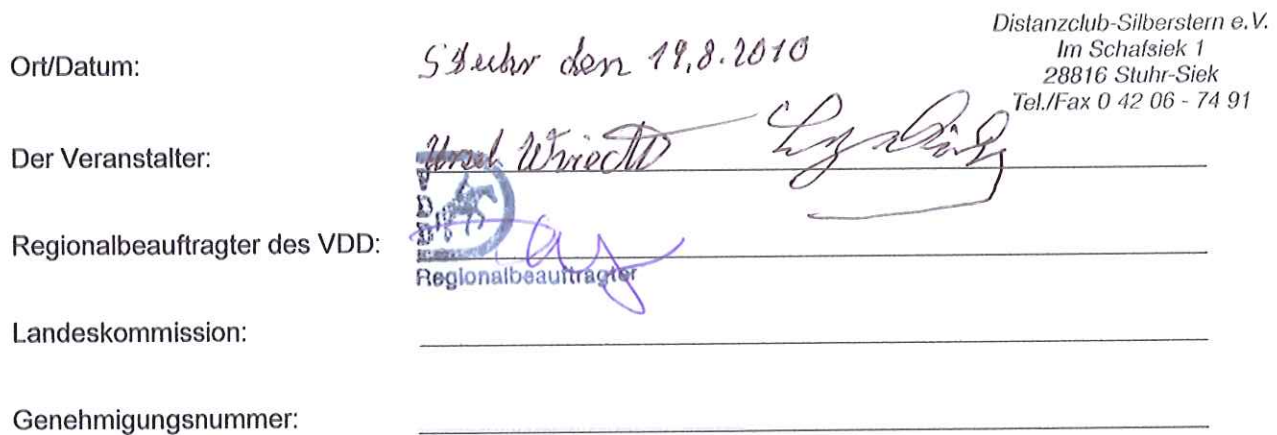 Distanzclub-Silberstern e.V.
Im Schafsiek 1
28816 Stuhr-Siek
Tel./Fax 0 42 06 - 74 91
Ort/Datum: Stuhr den 19.8.2010
Der Veranstalter:
VDD
Regionalbeauftragter des VDD:
Regionalbeauftragter
Landeskommission:
Genehmigungsnummer: